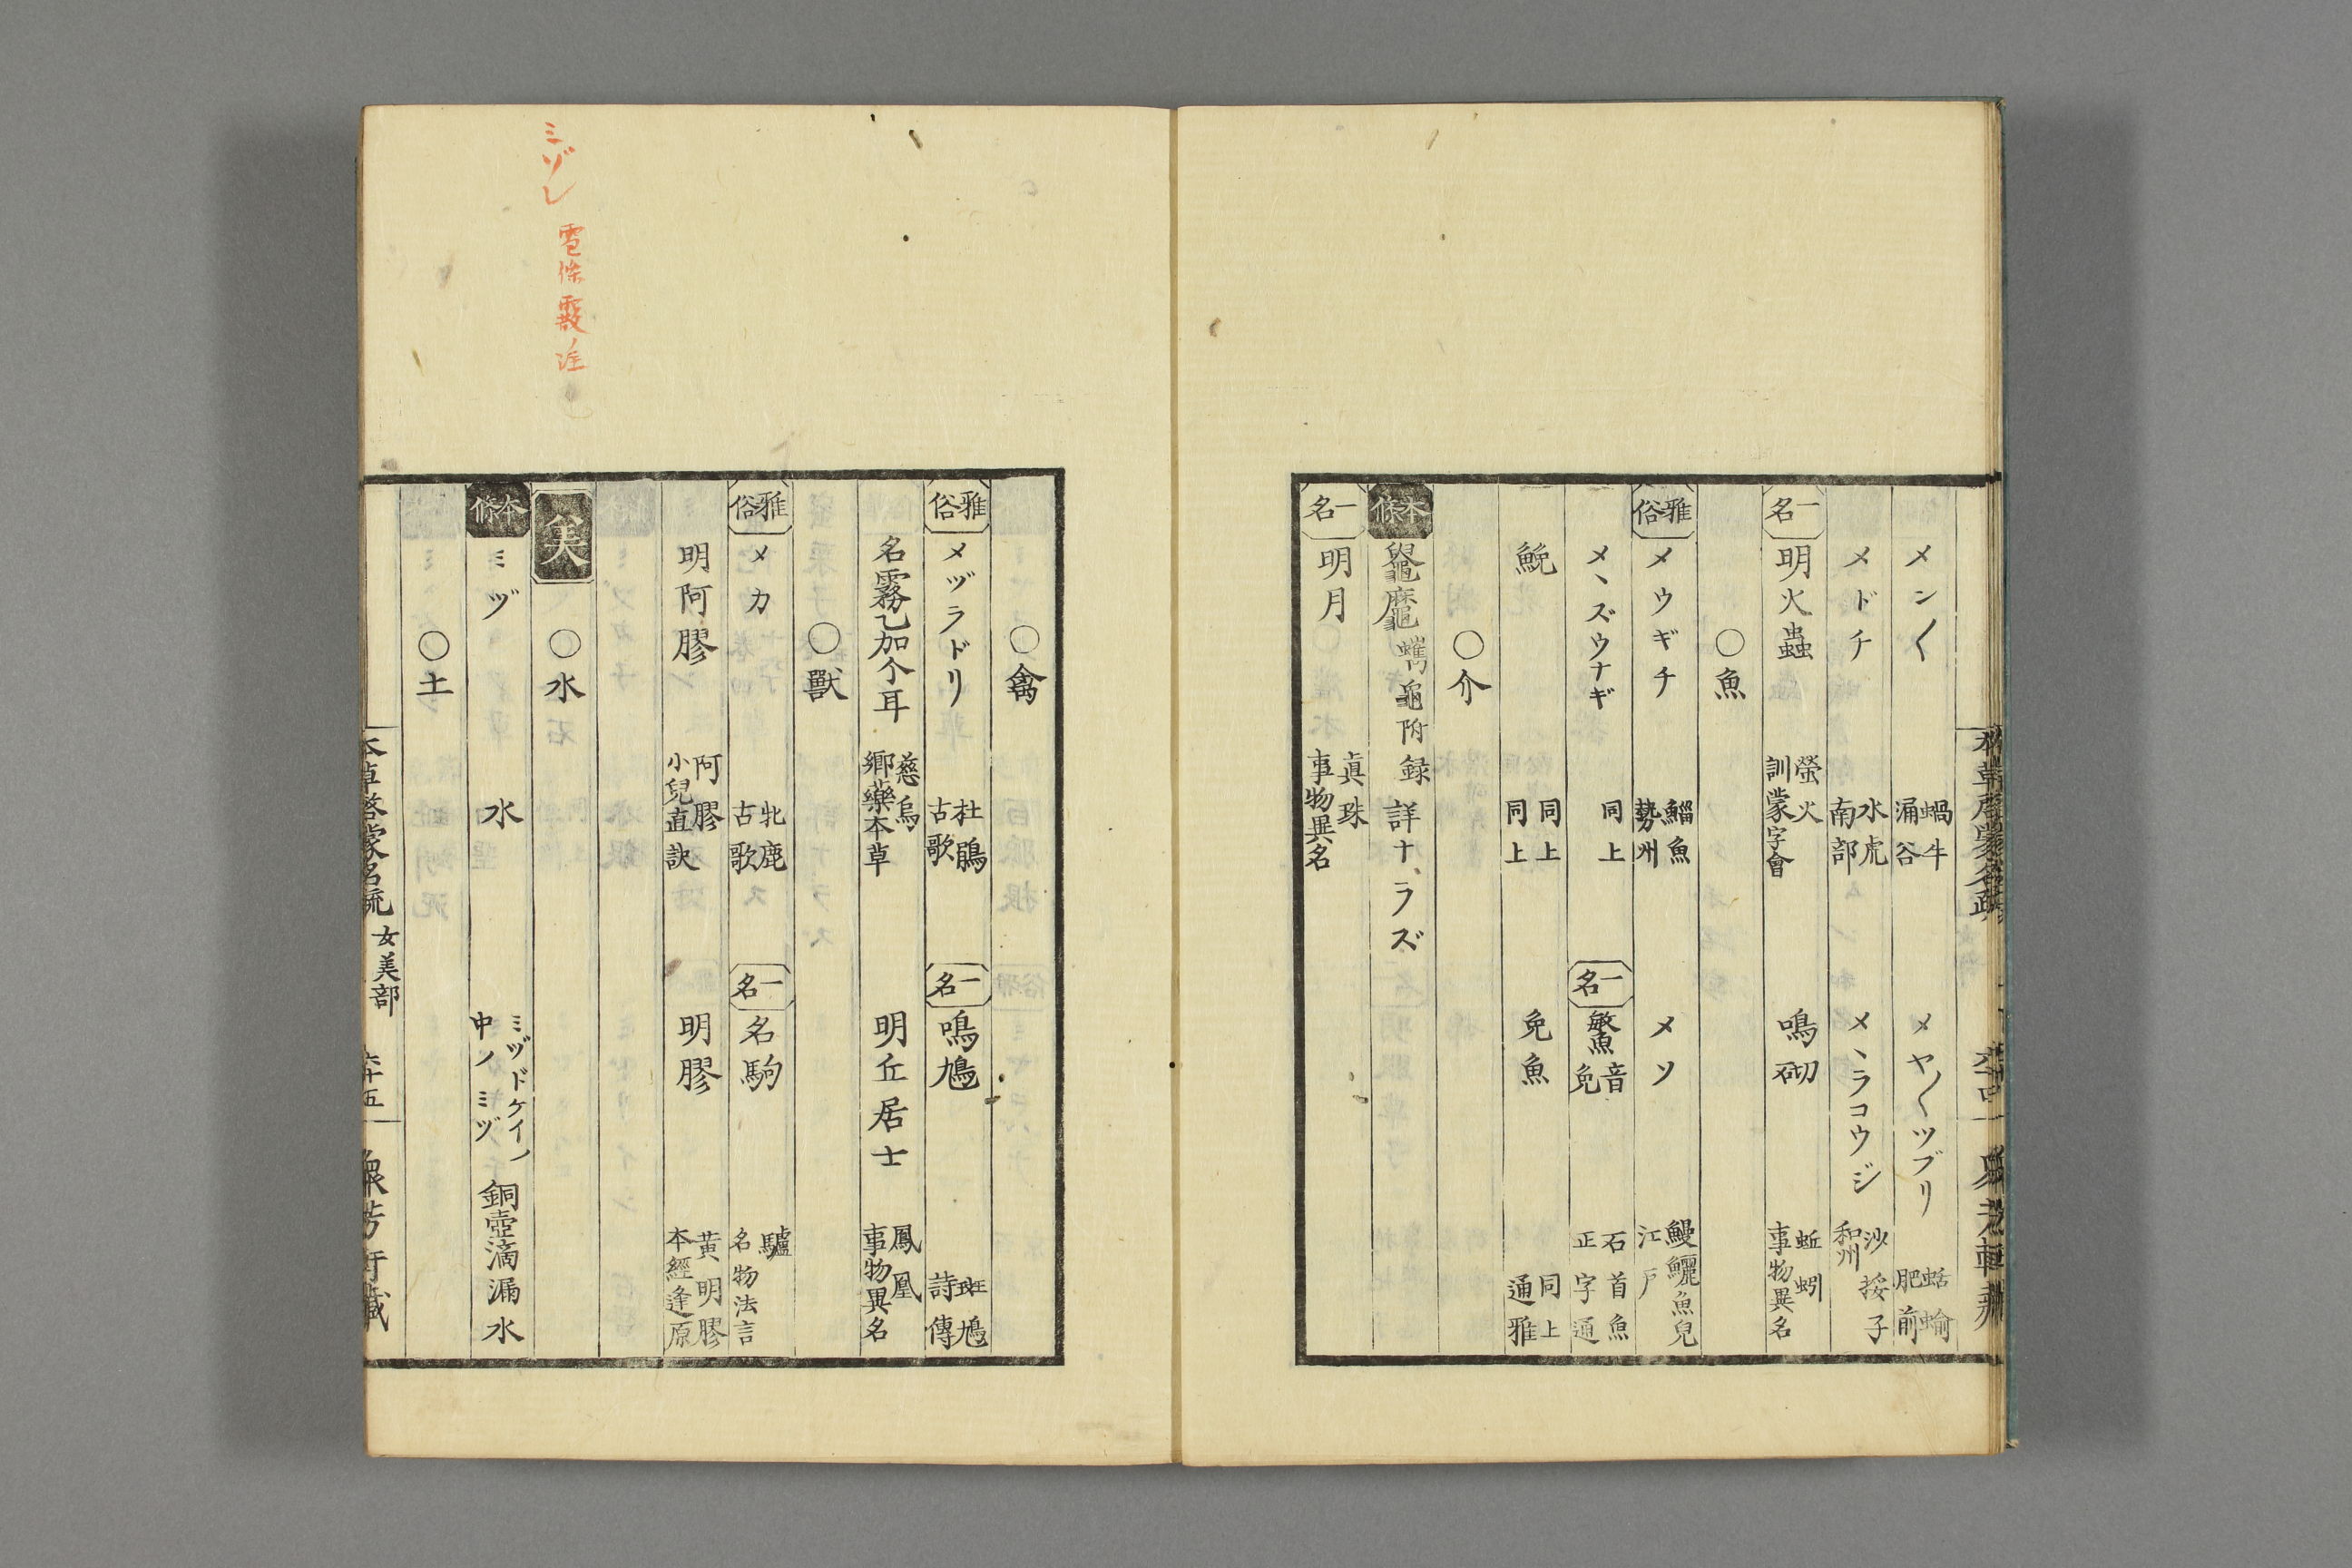 メン〱 蝸牛 涌谷 メヤ〱ツブリ 蛞蝓 肥前
メドチ 水虎 南部 メヽラコウジ 沙挼子 和州
一名 明火蟲 螢火 訓蒙字會 鳴砌 蚯蚓 事物異名
〇魚
雅俗 メウギチ 鯔魚 勢州 メソ 鰻鱺魚兒 江戸
メヽズウナギ 同上 一名 鰵 音免 石首魚 正字通
鮸 同上 同上 免魚 同上 通雅
〇介
本條 鼊 附録 詳ナラズ
一名 明月 眞珠 事物異名
〇禽
雅俗 メヅラドリ 杜鵑 古歌 一名 鳴鳩 斑鳩 詩傳
名霧乙加个耳 慈烏 郷藥本草 明丘居士 鳳凰 事物異名
〇獸
雅俗 メカ 牝鹿 古歌 一名 名駒 驢 名物法言
明阿膠 阿膠 小兒直訣 明膠 黄明膠 本經逢原
美
〇水
本條 ミヅ 水 ミヅドケイノ中ノミヅ 銅壺滴漏水
〇土
本草啓蒙名疏 女美部 六十五 衆芳軒藏
ミゾレ
雹條霰ノ注